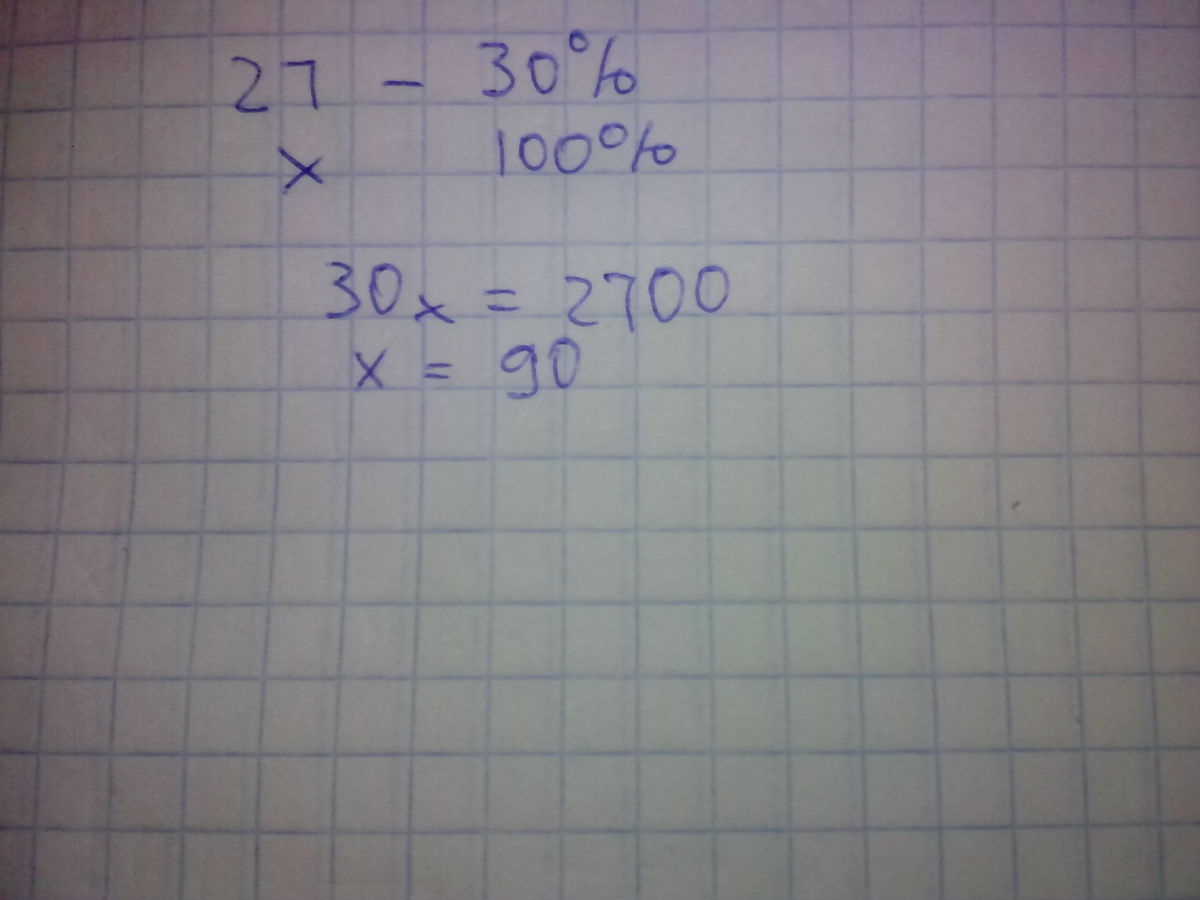 27 - 30%
x 100%
30x = 2700
x = 90